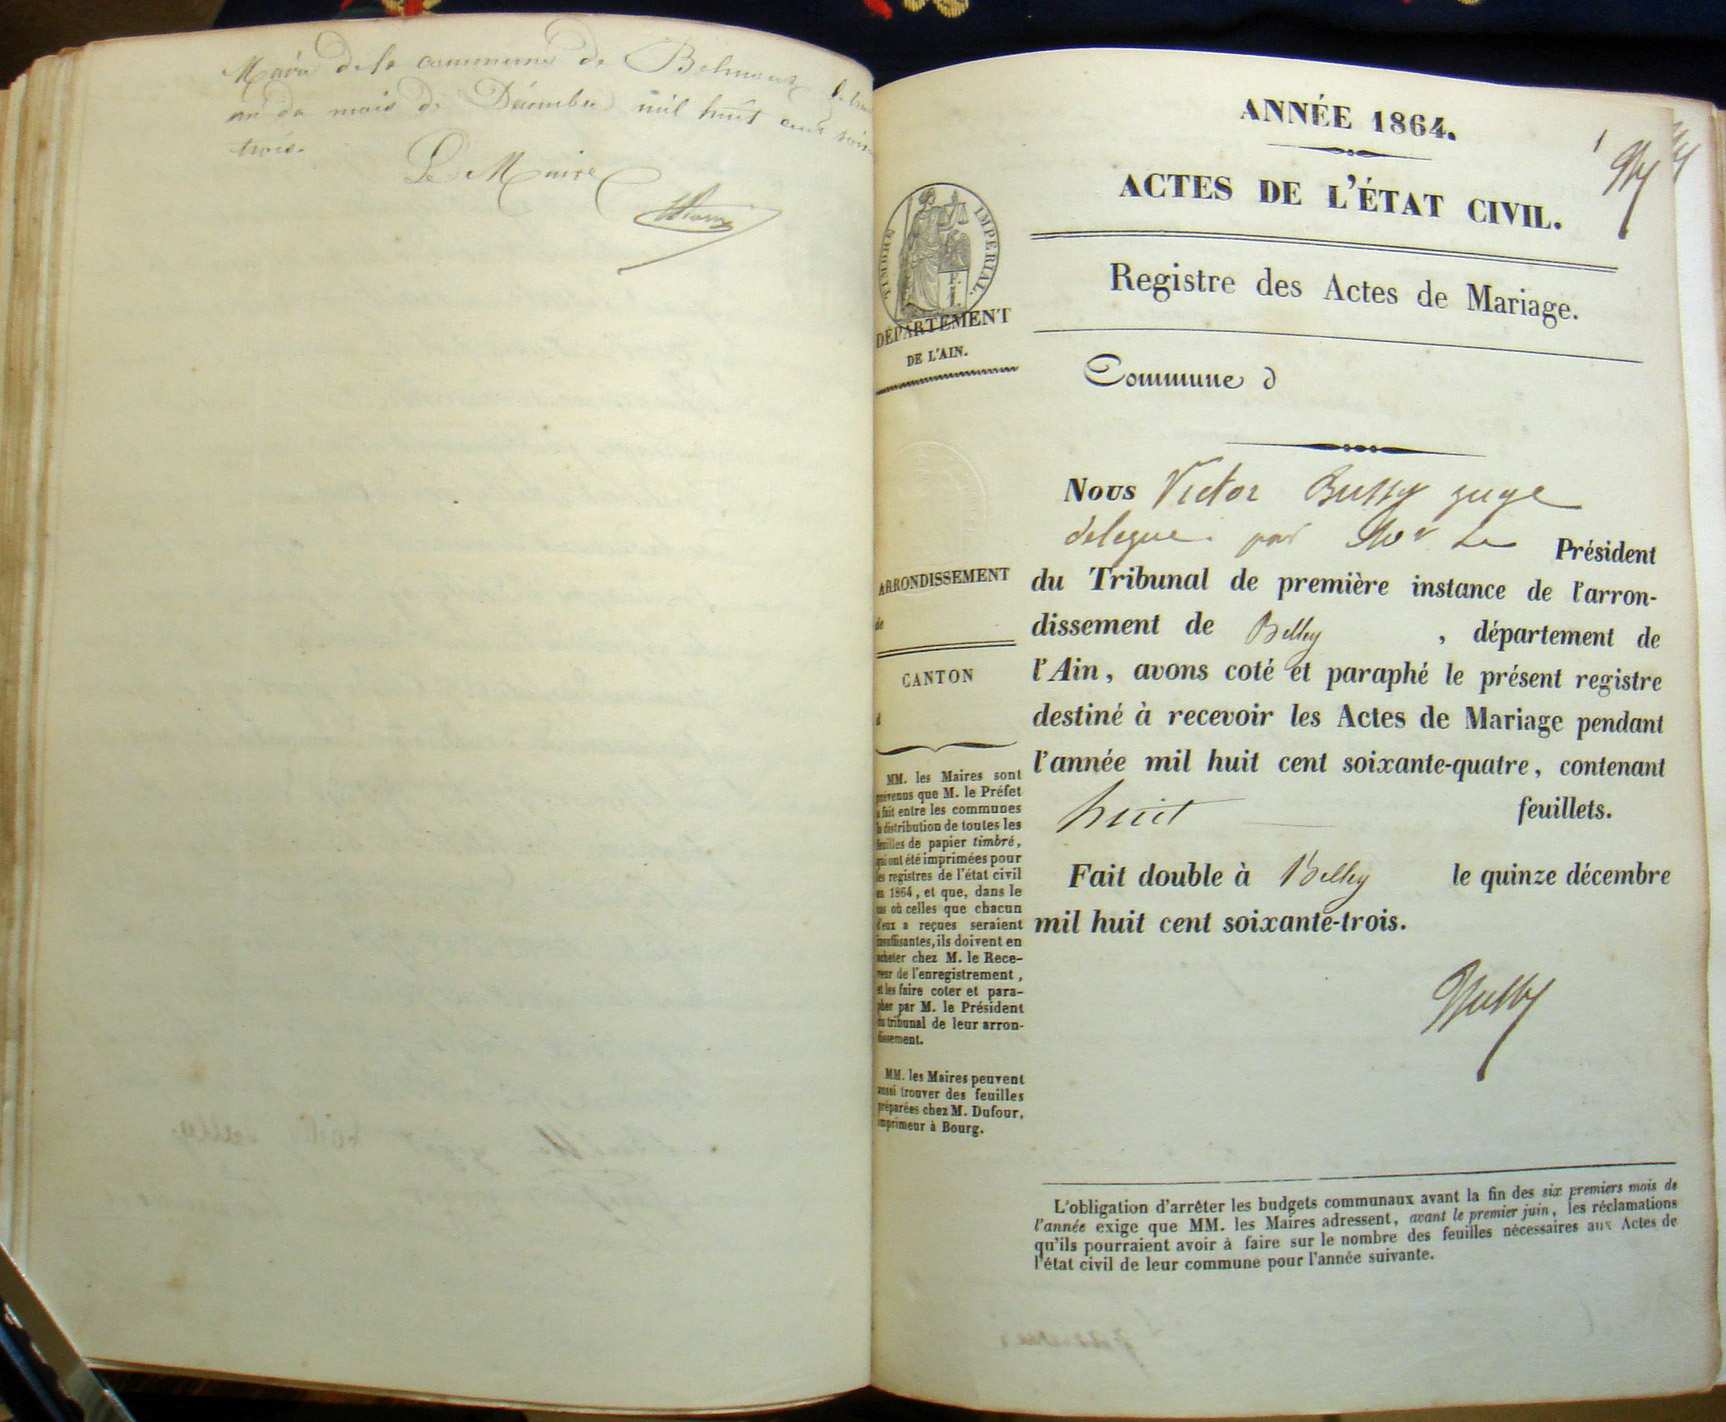 Maire de la commune de Belmont le trente
un du mois de Décembre mil huit cent soix
trois.
Le Maire
ANNÉE 1864.
1
ACTES DE L'ÉTAT CIVIL.
TIMBRE IMPERIAL.
Registre des Actes de Mariage.
DÉPARTEMENT
DE L'AIN.
Commune d
Nous Victor Bussy juge
délégué par Mr Le Président
du Tribunal de première instance de l'arron-
dissement de Belley , département de
l'Ain, avons coté et paraphé le présent registre
destiné à recevoir les Actes de Mariage pendant
l'année mil huit cent soixante-quatre, contenant
huit feuillets.
Fait double à Belley le quinze décembre
mil huit cent soixante-trois.
Bussy
ARRONDISSEMENT
de
CANTON
d
MM. les Maires sont
prévenus que M. le Préfet
a fait entre les communes
la distribution de toutes les
feuilles de papier timbré,
qui ont été imprimées pour
les registres de l'état civil
en 1864, et que, dans le
cas où celles que chacun
d'eux a reçues seraient
insuffisantes, ils doivent en
acheter chez M. le Rece-
veur de l'enregistrement,
et les faire coter et para-
pher par M. le Président
du tribunal de leur arron-
dissement.
MM. les Maires peuvent
aussi trouver des feuilles
préparées chez M. Dufour,
imprimeur à Bourg.
L'obligation d'arrêter les budgets communaux avant la fin des six premiers mois de
l'année exige que MM. les Maires adressent, avant le premier juin, les réclamations
qu'ils pourraient avoir à faire sur le nombre des feuilles nécessaires aux Actes de
l'état civil de leur commune pour l'année suivante.